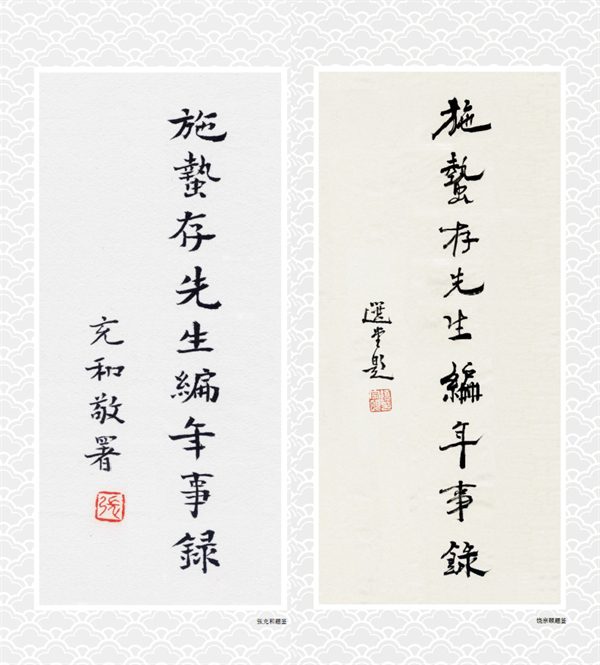 施蟄存先生編年事録
充和敬署
張
张充和题签
施蟄存先生編年事錄
選堂題
饶宗颐题签